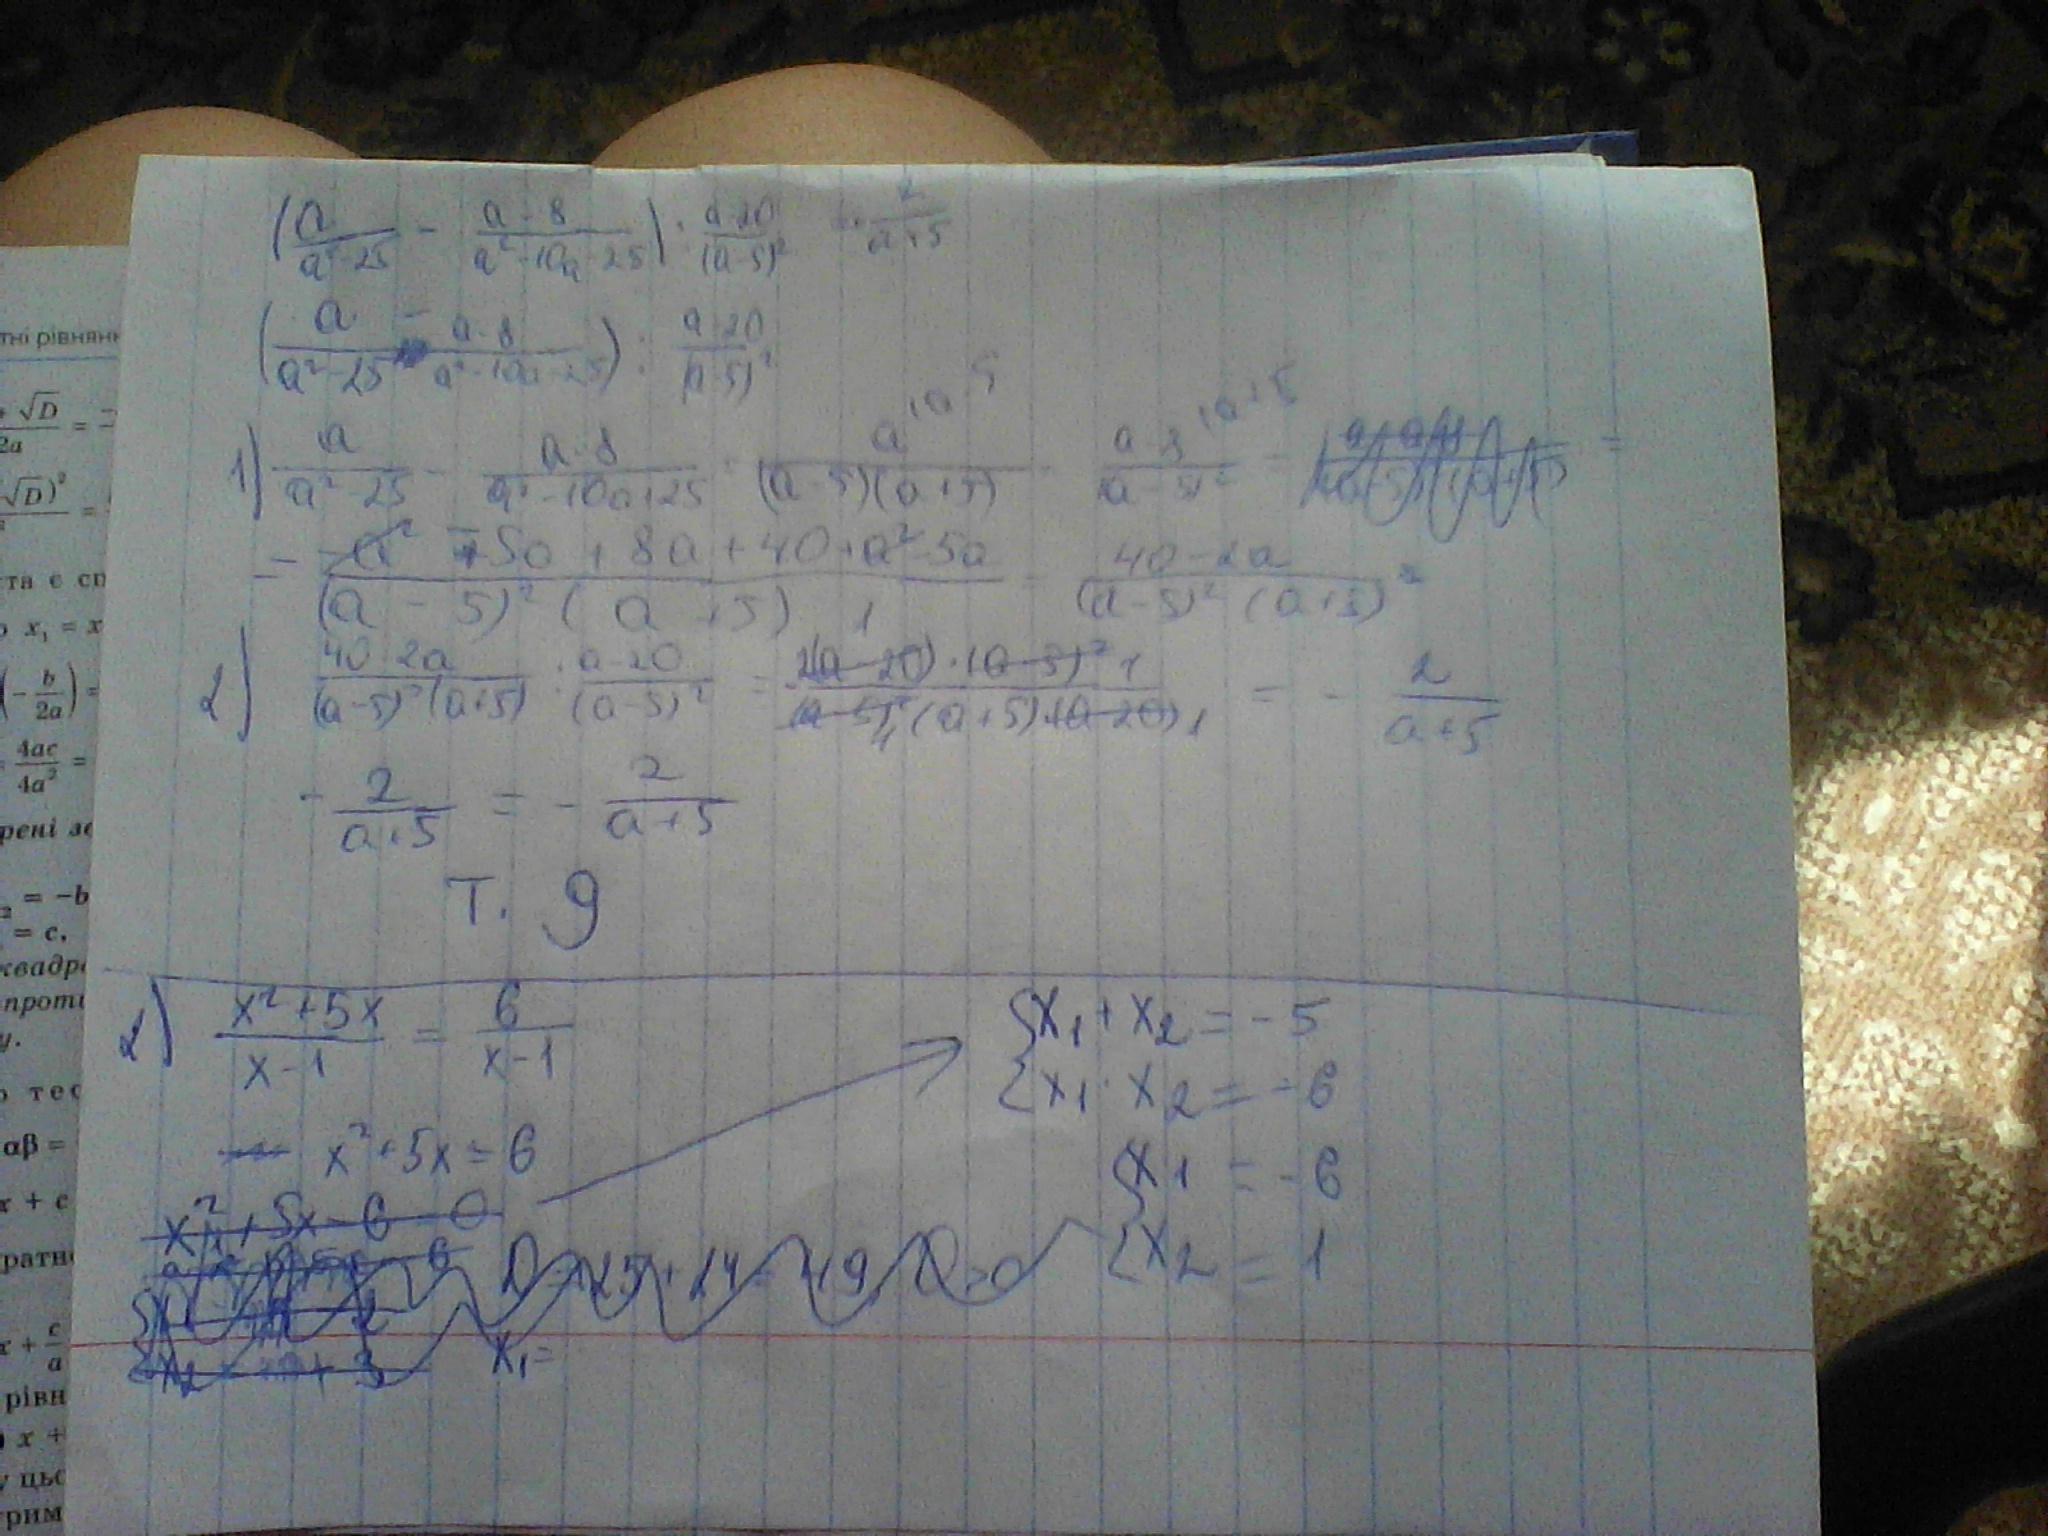 (a/(a²-25) - (a-8)/(a²-10a+25)) : (a-20)/(a-5)² = -2/(a+5)
(a/(a²-25) - (a-8)/(a²-10a+25)) : (a-20)/(a-5)²
1) a/(a²-25) - (a-8)/(a²-10a+25) = a/((a-5)(a+5)) - (a-8)/(a-5)² =
(40-2a)/((a-5)²(a+5))
2) (40-2a)/((a-5)²(a+5)) : (a-20)/(a-5)² = 2(a-20)·(a-5)²/((a-5)²(a+5)·(a-20)) = - 2/(a+5)
- 2/(a+5) = - 2/(a+5)
Т. 9
2) (x²+5x)/(x-1) = 6/(x-1)
x²+5x=6
x²+5x-6=0
D=25+24=49, D>0
x₁=
x₁+x₂=-5
x₁·x₂=-6
x₁=-6
x₂=1
тні рівнянн
+√D/2a = -
√D)²
ста є сп
о x₁ = x
(-b/2a) =
4ac/4a² =
рені
₂ = -b
= c.
квадра
проти
у.
о тес
αβ =
x + c
ратн
x + c/a
рівн
x +
у цьо
трим